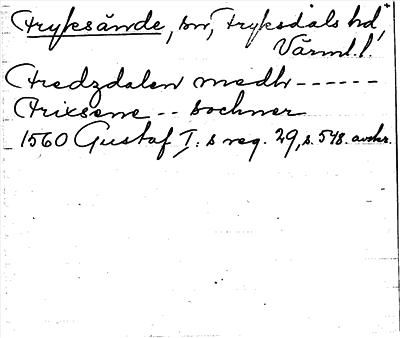 Fryksände, sn, Fryksdals hd,
Värml. l.
Fredzdalen medh ------
Frixsene -- sochner
1560 Gustaf I:s reg. 29, s. 548. avskr.